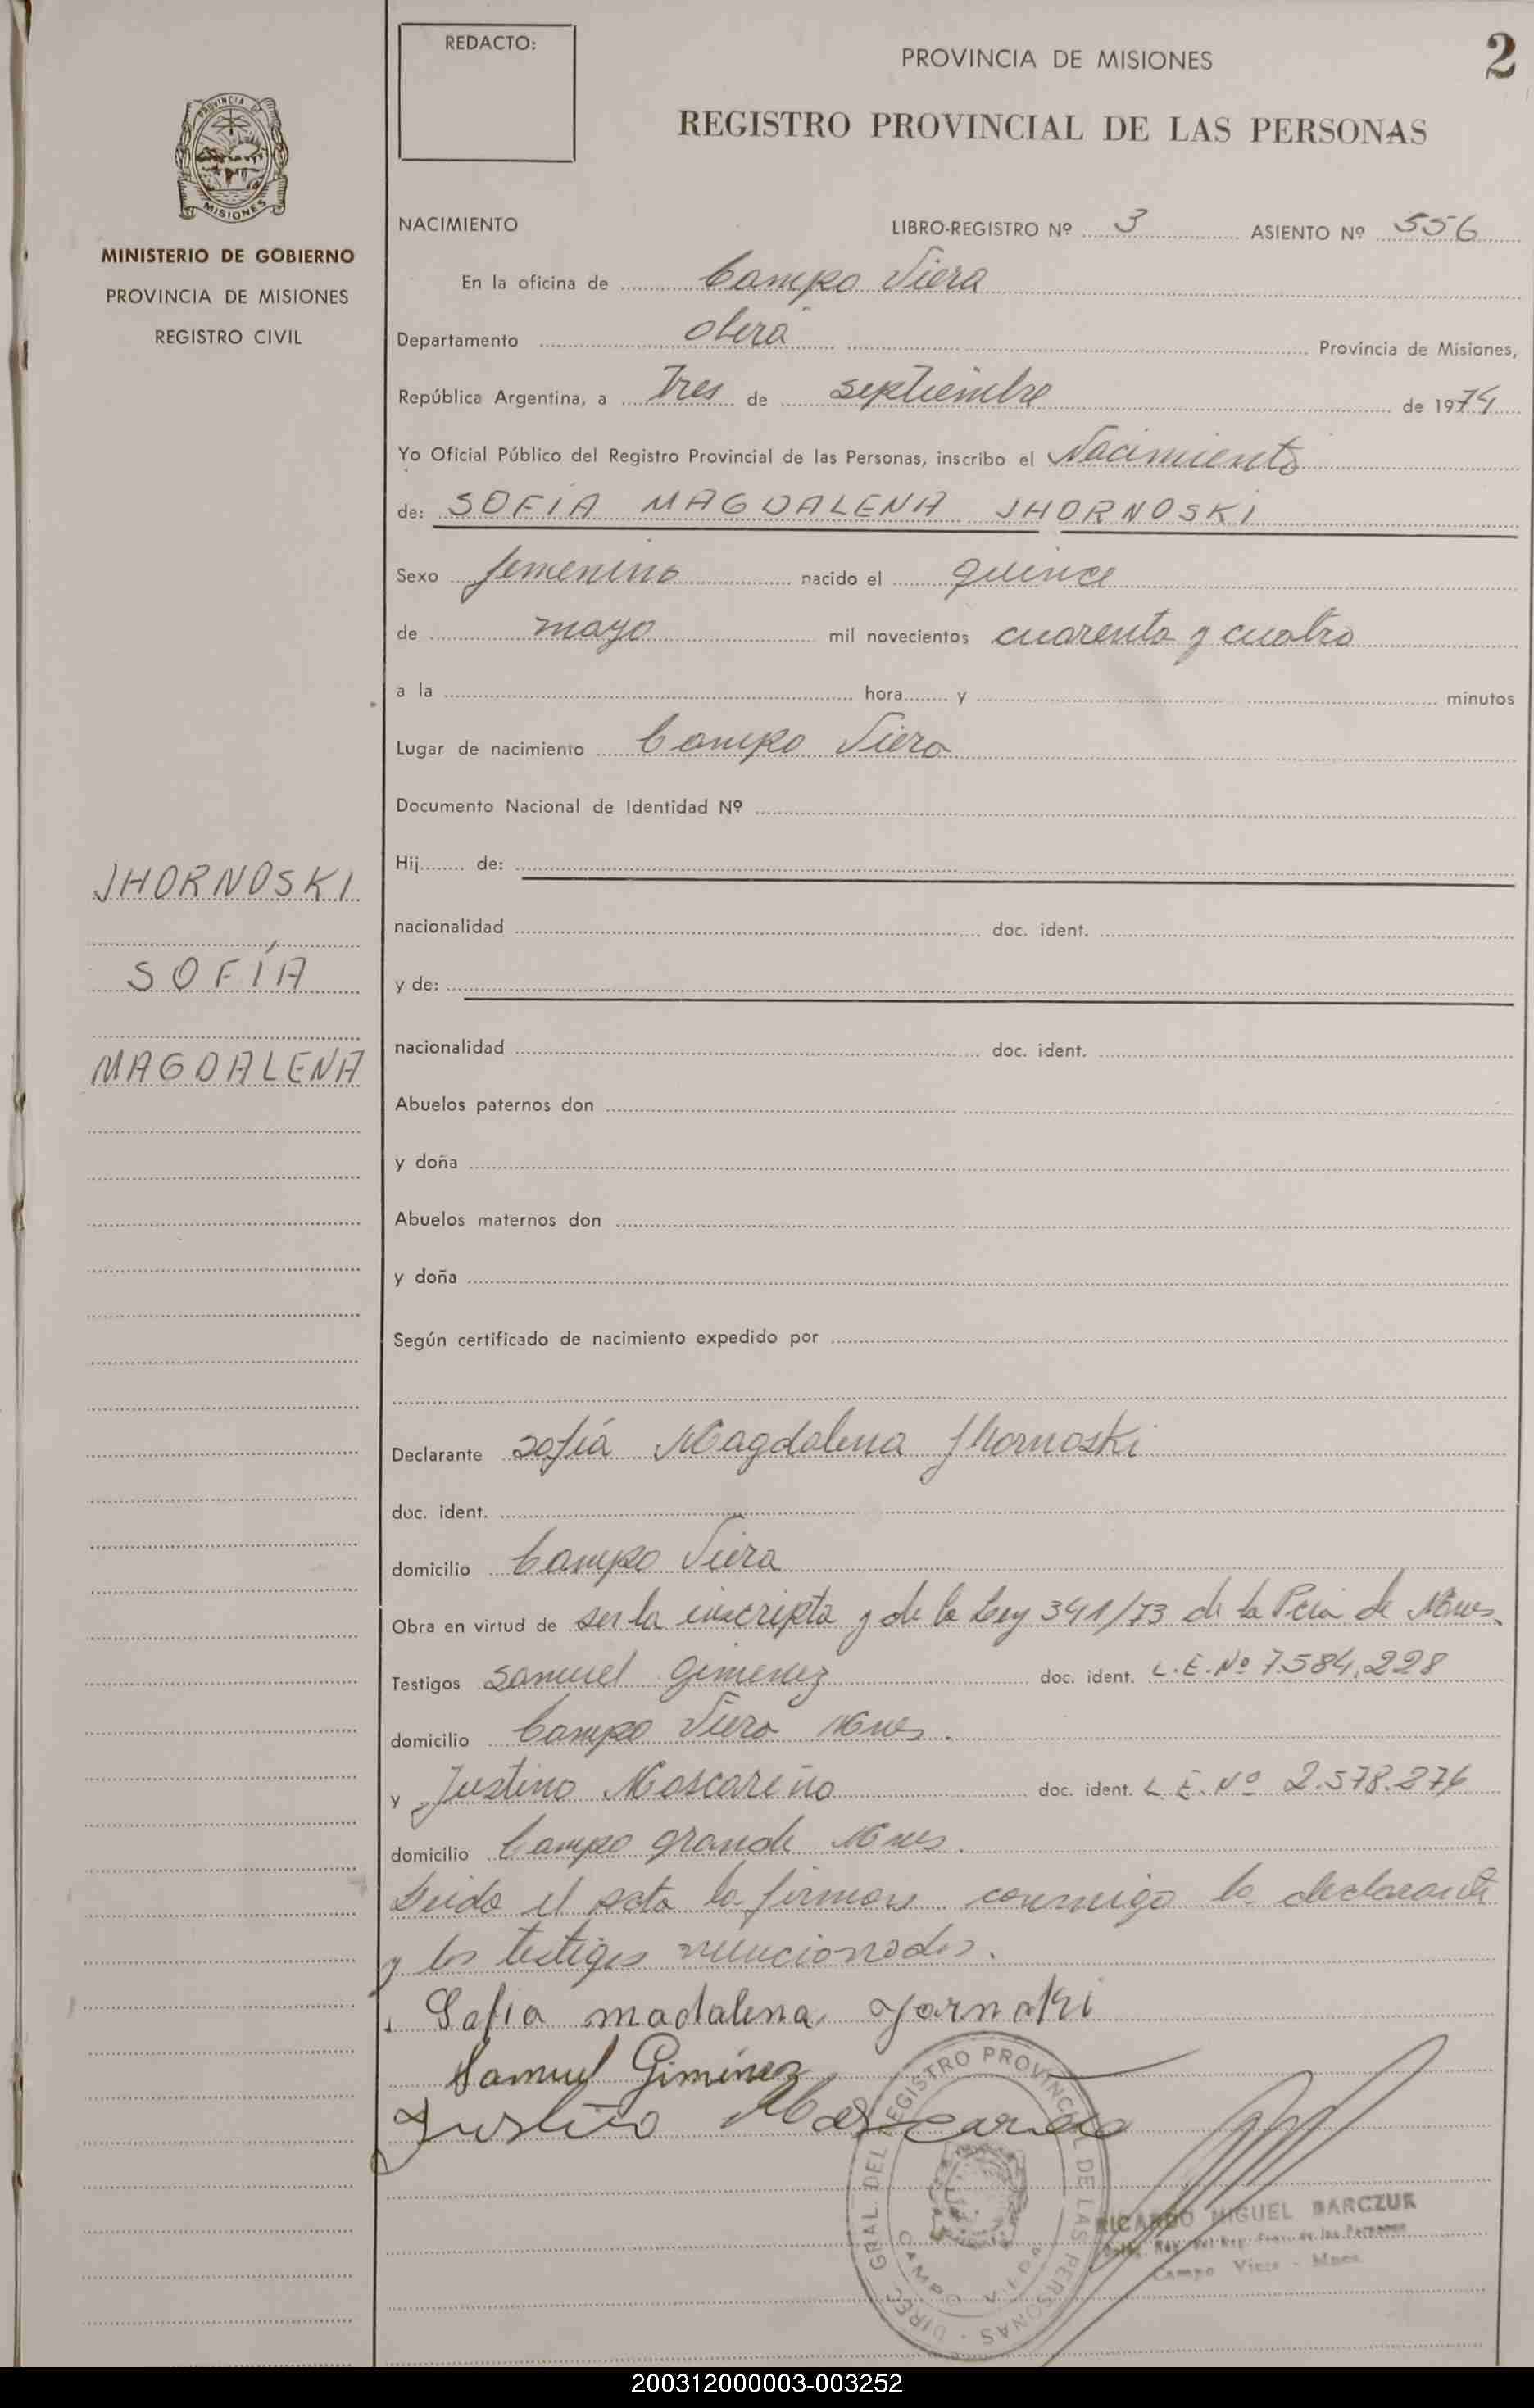 REDACTO:
PROVINCIA DE MISIONES
2
REGISTRO PROVINCIAL DE LAS PERSONAS
PROVINCIA DE
MISIONES
MINISTERIO DE GOBIERNO
PROVINCIA DE MISIONES
REGISTRO CIVIL
NACIMIENTO LIBRO-REGISTRO Nº 3 ASIENTO Nº 556
En la oficina de Campo Viera
Departamento Oberá Provincia de Misiones,
República Argentina, a Tres de septiembre de 1974
Yo Oficial Público del Registro Provincial de las Personas, inscribo el Nacimiento
de: SOFÍA MAGDALENA JHORNOSKI
Sexo femenino nacido el quince
de mayo mil novecientos cuarenta y cuatro
a la hora y minutos
Lugar de nacimiento Campo Viera
Documento Nacional de Identidad Nº
Hij de:
nacionalidad doc. ident.
y de:
nacionalidad doc. ident.
Abuelos paternos don
y doña
Abuelos maternos don
y doña
Según certificado de nacimiento expedido por
JHORNOSKI
SOFÍA
MAGDALENA
Declarante Sofía Magdalena Jhornoski
doc. ident.
domicilio Campo Viera
Obra en virtud de ser la inscripta y de la Ley 341/73 de la Pcia de Mnes.
Testigos Samuel Gimenez doc. ident. L.E. Nº 7.584.228
domicilio Campo Viera Mnes.
y Justino Mascareño doc. ident. L.E. Nº 2.578.276
domicilio Campo grande Mnes.
Leida el acta la firman conmigo la declarante
y los testigos mencionados.
Sofia madalena Jornoski
Samuel Giminez
Justino Mascareño
DIREC. GRAL DEL REGISTRO PROVINCIAL DE LAS PERSONAS
CAMPO VIERA
RICARDO MIGUEL BARCZUK
Campo Viera - Mnes.
200312000003-003252